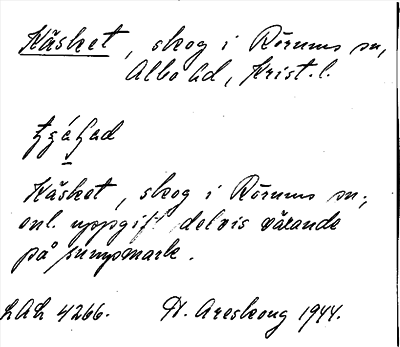 Käsket, skog i Rörums sn,
Albo hd, Krist. l.
Käsket, skog i Rörums sn,
enl. uppgift delvis växande
på sumpmark.
LAL 4266. H. Areskoug 1944.